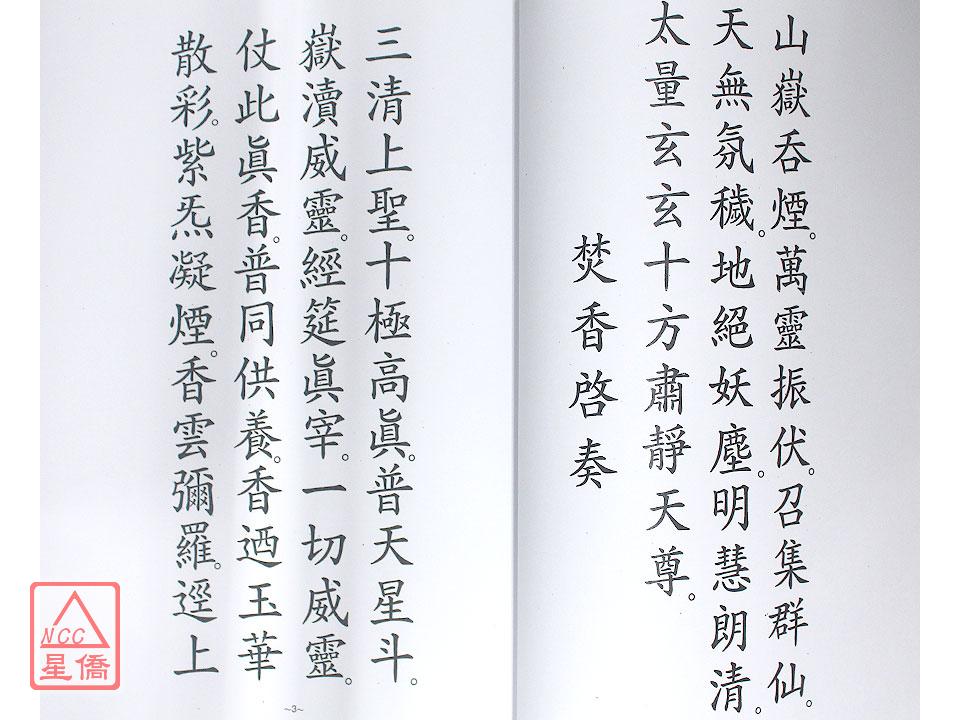 山嶽吞煙。萬靈振伏。召集群仙。
天無氛穢。地絕妖塵。明慧朗清。
太量玄玄十方肅靜天尊。
焚香啓奏
三清上聖。十極高眞。普天星斗。
嶽瀆威靈。經筵眞宰。一切威靈。
仗此眞香。普同供養。香迺玉華
散彩。紫炁凝煙。香雲彌羅。逕上
~3~
NCC
星僑